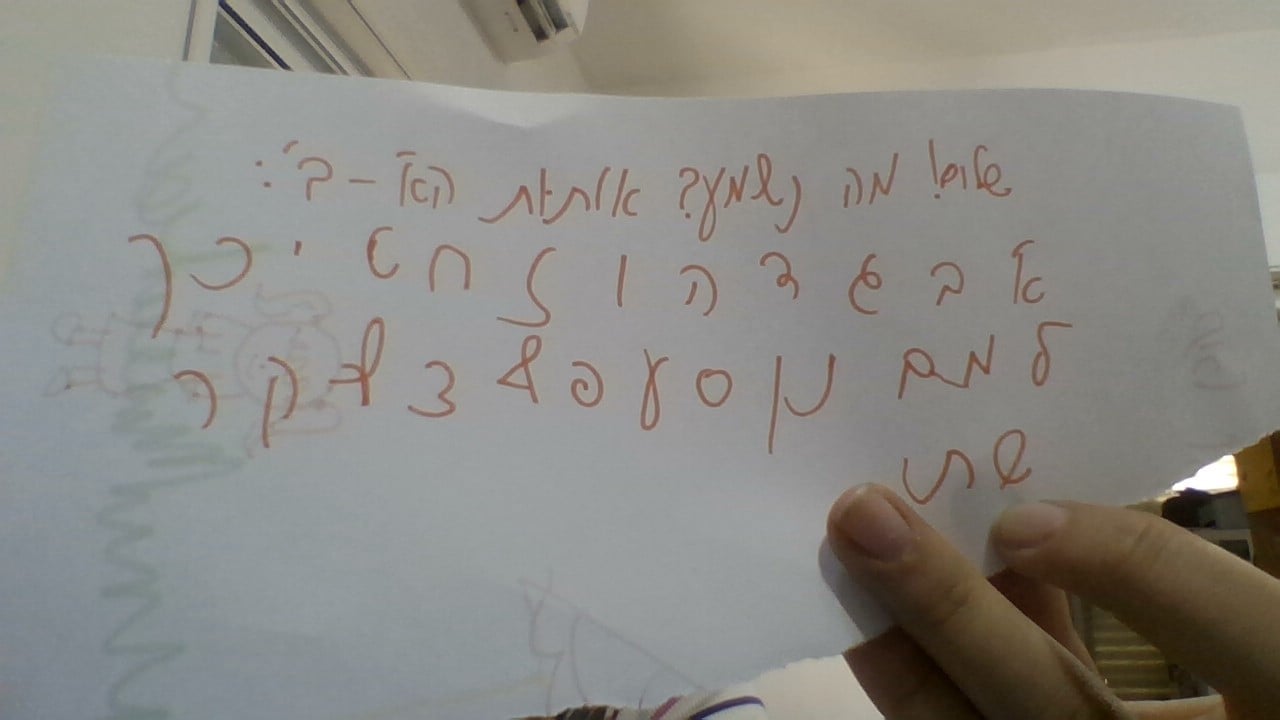 שלום! מה נשמע? אותיות הא'-ב':
א ב ג ד ה ו ז ח ט י כ ך
ל מ ם נ ן ס ע פ ף צ ץ ק ר
ש ת